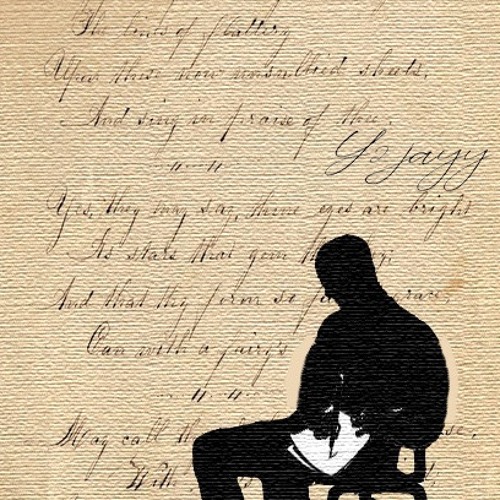 The lines of flattery
Upon these now unsullied sheets,
And sing in praise of thee.
Yes, they may say, thine eyes are bright
As stars that gem the
And that thy form so
Can with a fairy's
May call
With